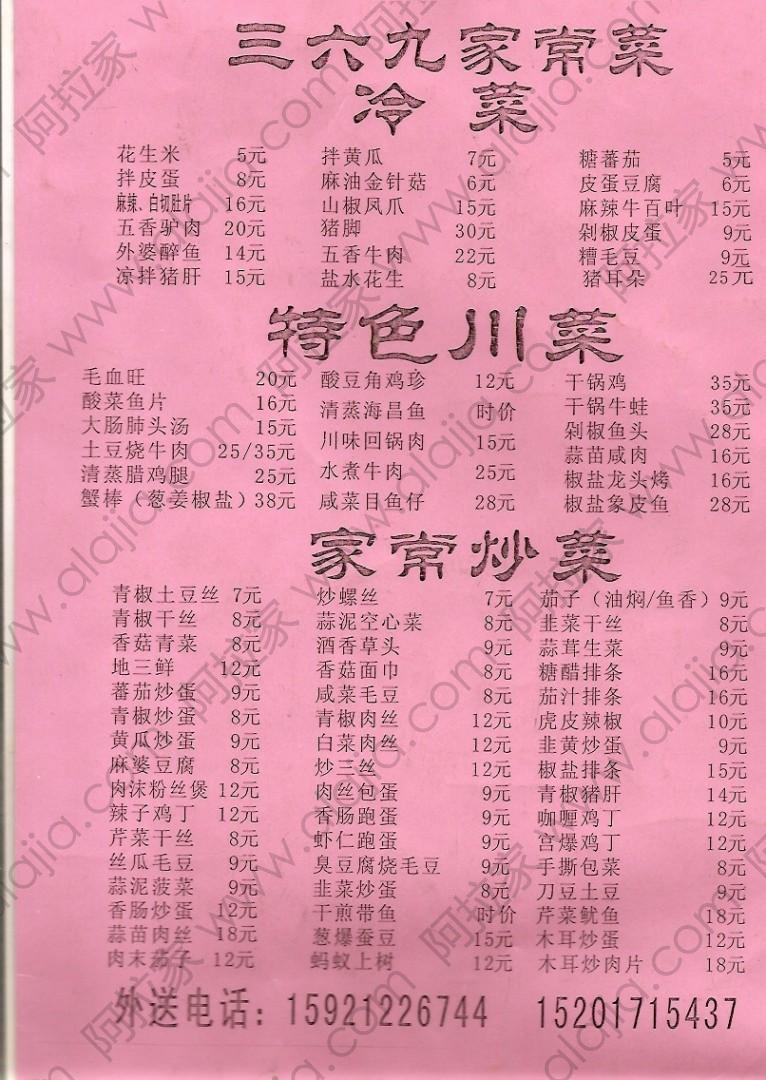 三六九家常菜
冷 菜
花生米 5元 拌黄瓜 7元 糖蕃茄 5元
拌皮蛋 8元 麻油金针菇 6元 皮蛋豆腐 6元
麻辣、白切肚片 16元 山椒凤爪 15元 麻辣牛百叶 15元
五香驴肉 20元 猪脚 30元 剁椒皮蛋 9元
外婆醉鱼 14元 五香牛肉 22元 糟毛豆 9元
凉拌猪肝 15元 盐水花生 8元 猪耳朵 25元
特色川菜
毛血旺 20元 酸豆角鸡珍 12元 干锅鸡 35元
酸菜鱼片 16元 清蒸海昌鱼 时价 干锅牛蛙 35元
大肠肺头汤 15元 川味回锅肉 15元 剁椒鱼头 28元
土豆烧牛肉 25/35元 水煮牛肉 25元 蒜苗咸肉 16元
清蒸腊鸡腿 25元 咸菜目鱼仔 28元 椒盐龙头烤 16元
蟹棒（葱姜椒盐）38元 椒盐象皮鱼 28元
家常炒菜
青椒土豆丝 7元 炒螺丝 7元 茄子（油焖/鱼香）9元
青椒干丝 8元 蒜泥空心菜 8元 韭菜干丝 8元
香菇青菜 8元 酒香草头 9元 蒜茸生菜 9元
地三鲜 12元 香菇面巾 8元 糖醋排条 16元
蕃茄炒蛋 9元 咸菜毛豆 8元 茄汁排条 16元
青椒炒蛋 8元 青椒肉丝 12元 虎皮辣椒 10元
黄瓜炒蛋 9元 白菜肉丝 12元 韭黄炒蛋 9元
麻婆豆腐 8元 炒三丝 12元 椒盐排条 15元
肉沫粉丝煲 12元 肉丝包蛋 9元 青椒猪肝 14元
辣子鸡丁 12元 香肠跑蛋 9元 咖喱鸡丁 12元
芹菜干丝 8元 虾仁跑蛋 9元 宫爆鸡丁 12元
丝瓜毛豆 9元 臭豆腐烧毛豆 9元 手撕包菜 8元
蒜泥菠菜 9元 韭菜炒蛋 8元 刀豆土豆 9元
香肠炒蛋 12元 干煎带鱼 时价 芹菜鱿鱼 18元
蒜苗肉丝 18元 葱爆蚕豆 15元 木耳炒蛋 12元
肉末茄子 12元 蚂蚁上树 12元 木耳炒肉片 18元
外送电话：15921226744 15201715437
阿拉家 www.alajia.com